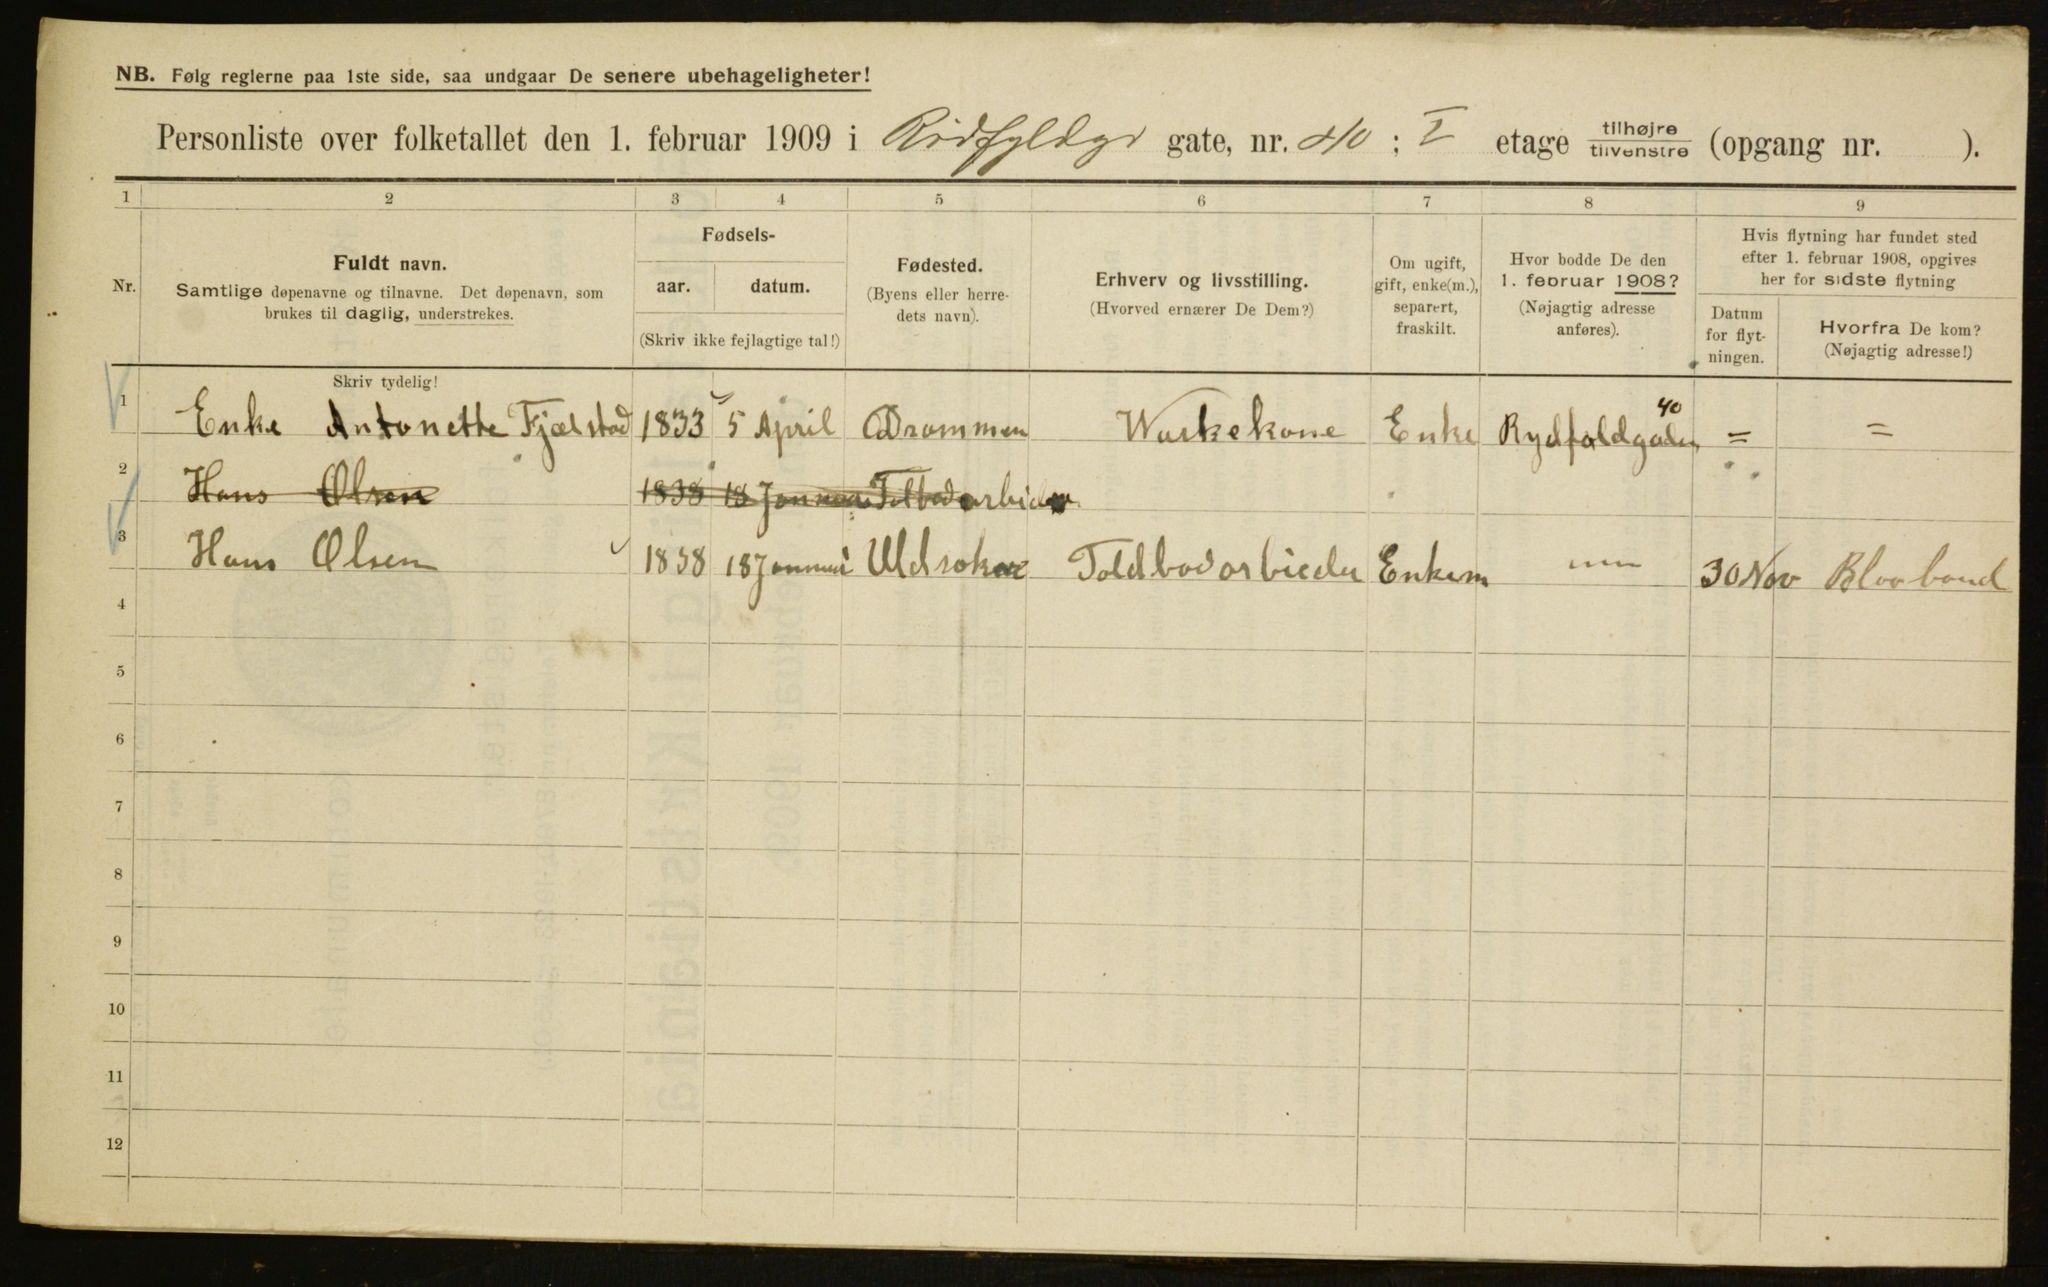 NB. Følg reglerne paa 1ste side, saa undgaar De senere ubehageligheter!
Personliste over folketallet den 1. februar 1909 i Ridfyldgs gate, nr. 40; I etage tilhøjre tilvenstre (opgang nr. ).
1 2 3 4 5 6 7 8 9
Nr.
Fuldt navn.
Samtlige døpenavne og tilnavne. Det døpenavn, som
brukes til daglig, understrekes.
Skriv tydelig!
Fødsels-
aar. datum.
(Skriv ikke fejlagtige tal!)
Fødested.
(Byens eller herre-
dets navn).
Erhverv og livsstilling.
(Hvorved ernærer De Dem?)
Om ugift,
gift, enke(m.),
separert,
fraskilt.
Hvor bodde De den
1. februar 1908?
(Nøjagtig adresse
anføres).
Hvis flytning har fundet sted
efter 1. februar 1908, opgives
her for sidste flytning
Datum
for flyt-
ningen.
Hvorfra De kom?
(Nøjagtig adresse!)
1 Enke Antonette Fjælstad 1833 5 April Drammen Waskekone Enke Rydfoldgaden 40 = =
2 Hans Olsen 1838 18 Januar Tolbodarbider
3 Hans Olsen 1838 18 Januar Uldsoken Toldbodarbieder Enkem 30 Nov
4
5
6
7
8
9
10
11
12